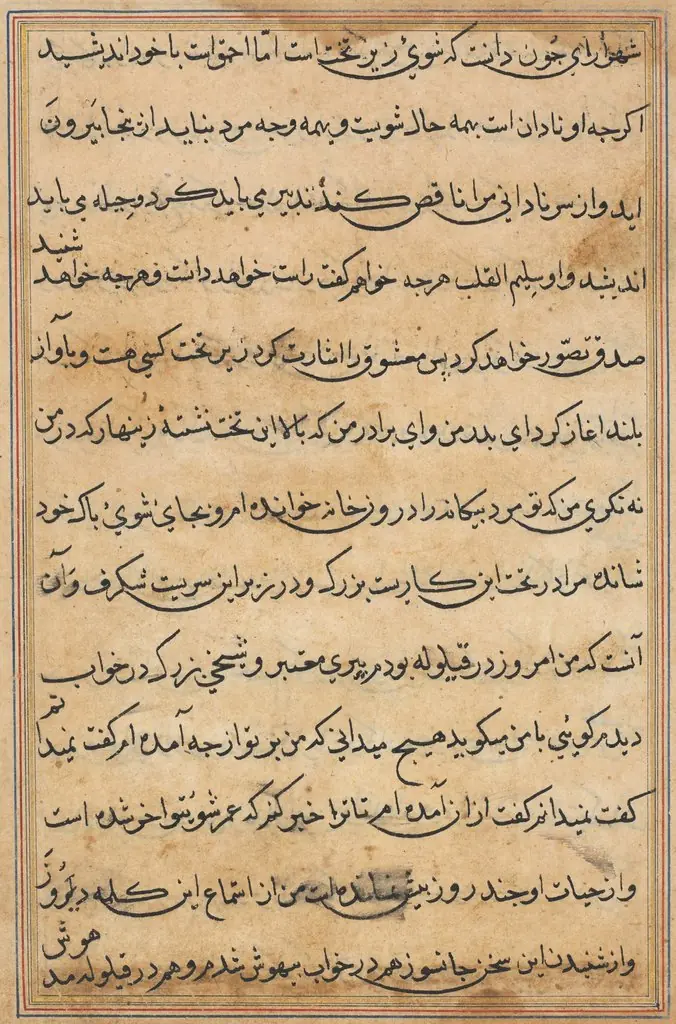 شهرارای جون دانست که شوئ زیر تخت است امّا احمق است با خود اندیشید
اکرجه او نادان است بهمه حال شویست و بهمه وجه مرد بناید از نجا بیرون
اید و از سر نادانی مرا ناقص کند تدبیر می باید کرد و حیله می باید
اندیشید و او سلیم القلب هرجه خواهم کفت راست خواهد دانست و هرجه خواهد شنید
صدق تصوّر خواهد کرد پس معشوق را اشارت کرد زیر تخت کسی هست و بآواز
بلند اغاز کرد ای بدر من و ای برادر من که بالا این تخت نشستهٔ زینهار که در من
نه نکری من که تو مرد بیکانه را در روز خانه خوانده ام و بجای شوئ باک خود
شانده مرا در تخت این کاریست بزرک و در زیر این سریست شکرف و آن
آنست که من امروز در قیلوله بودم پیری معتبر و شیخی بزرک در خواب
دیدم کوئیی با من میکوید هیج میدانی که من بر تو از جه آمده ام کفت نمیدانم
کفت نمیدانم کفت از ان آمده ام تا ترا خبر کنم که عمر شوی تو اخر شده است
و از حیات او جند روز بیش نمانده است من از استماع این کلمه دلروز
و از شنیدن این سخن جانسوز هم در خواب بیهوش شدم و هم در قیلوله مدهوش